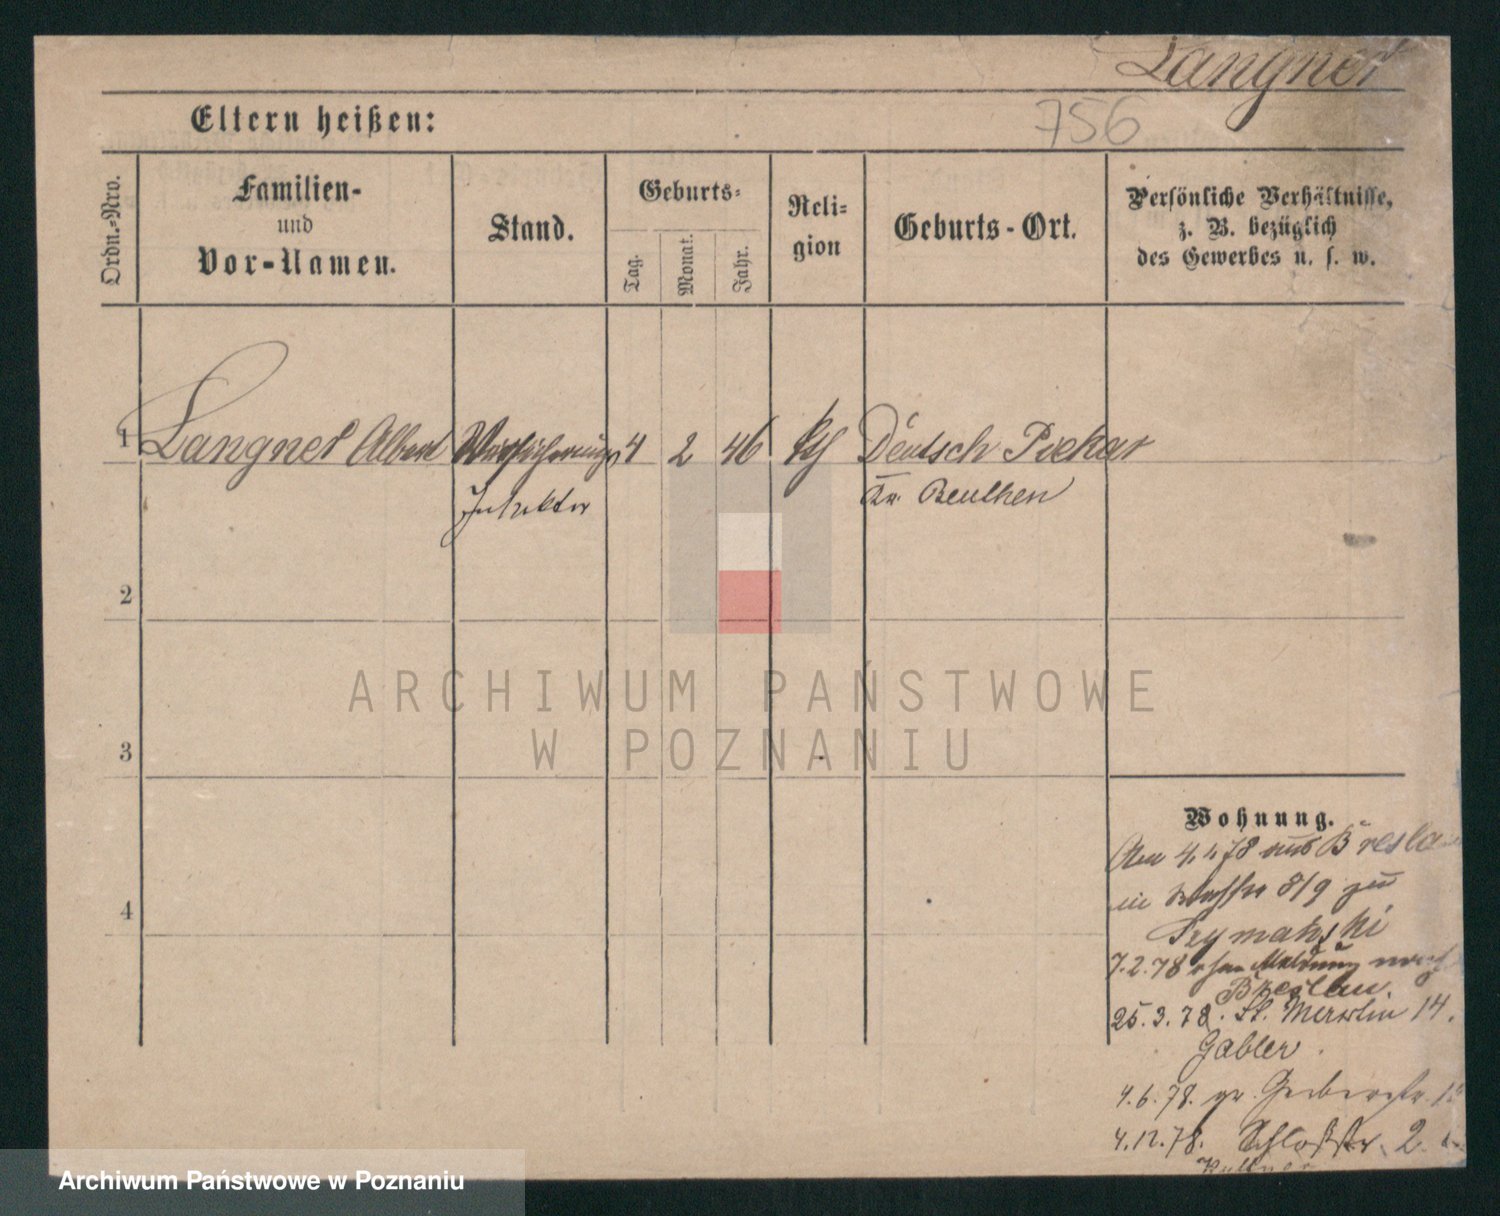 Langner
756
Eltern heißen:
Ordn.-Nro.
Familien-
und
Vor-Namen.
Stand.
Geburts-
Tag.
Monat.
Jahr.
Reli-
gion
Geburts-Ort.
Persönliche Verhältnisse,
z. B. bezüglich
des Gewerbes u. s. w.
1 Langner Albert Versicherungs 4 2 46 kth Deutsch Piekar
Inspektor Kr. Beuthen
2
3
4
Wohnung.
Am 4.1.78 aus Bresla
in 8/9 zu
7.2.78 ohne Meldung nach
Breslau.
25.3.78. St. Martin 14.
Gabler.
4.6.78. gr. Gerberstr.
4.12.78. Schloßstr. 2
ARCHIWUM PAŃSTWOWE
W POZNANIU
Archiwum Państwowe w Poznaniu